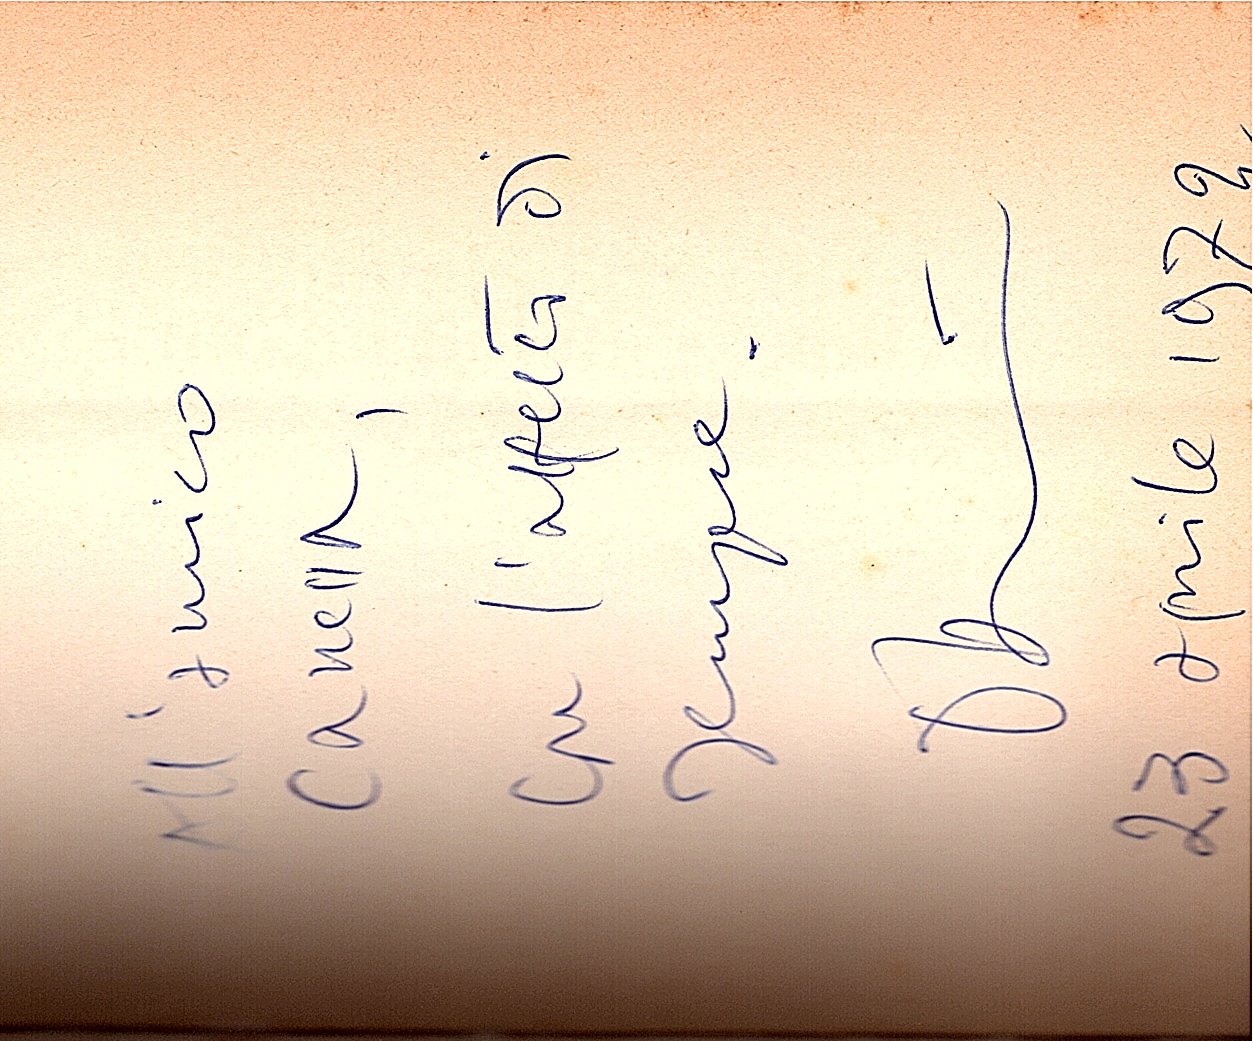 All'amico
Canella,
con l'affetto di
sempre.
23 aprile 1972